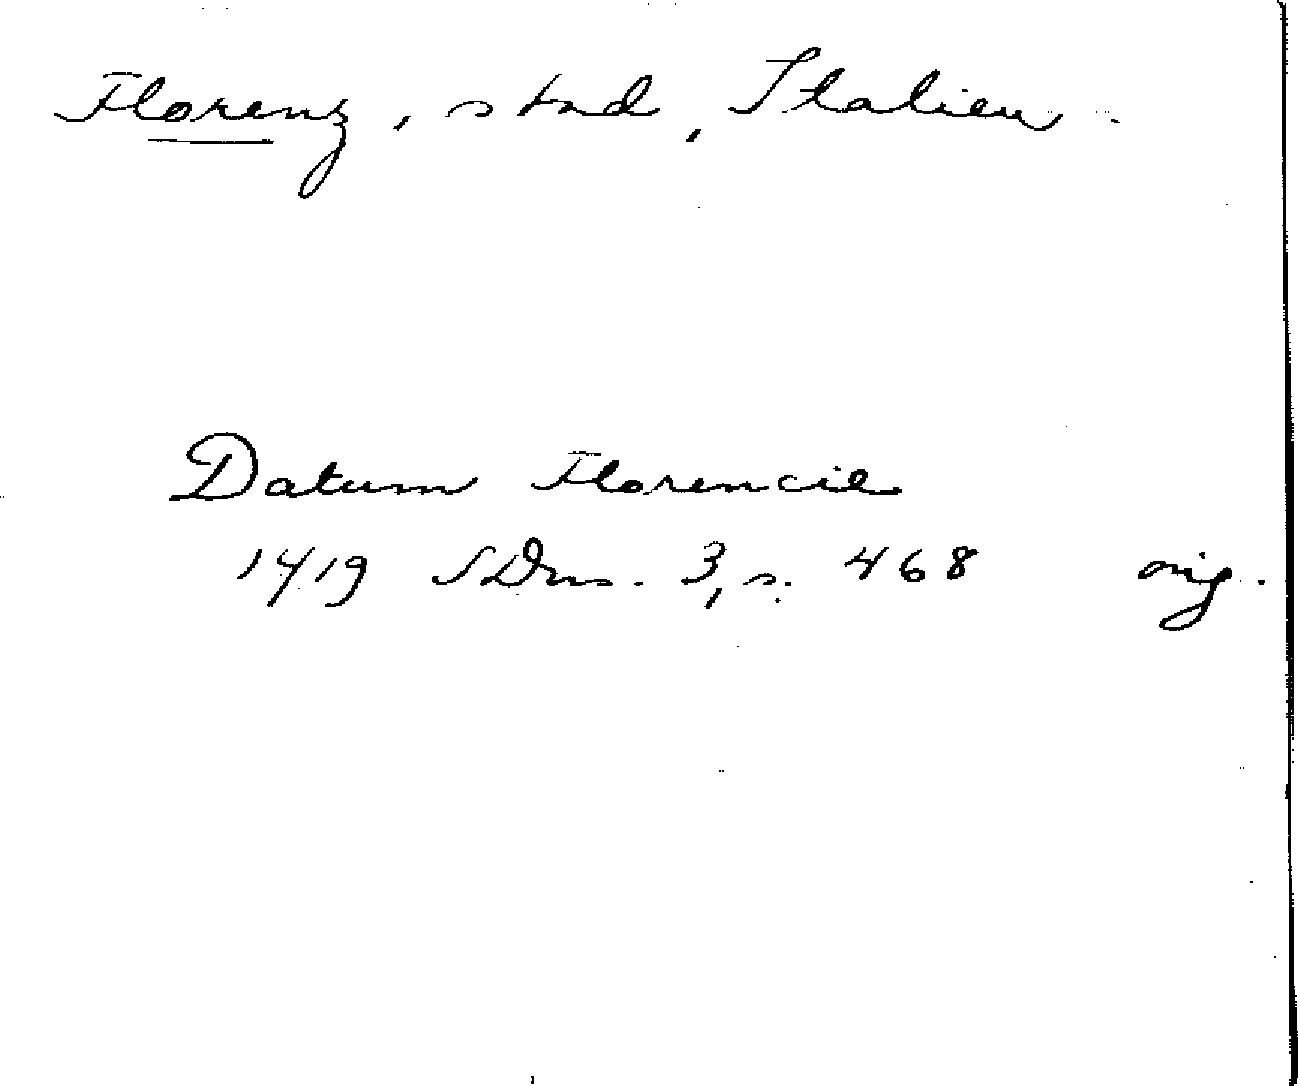 Florenz, stad, Italien.
Datum Florencie
1419 SDns. 3, s. 468 orig.